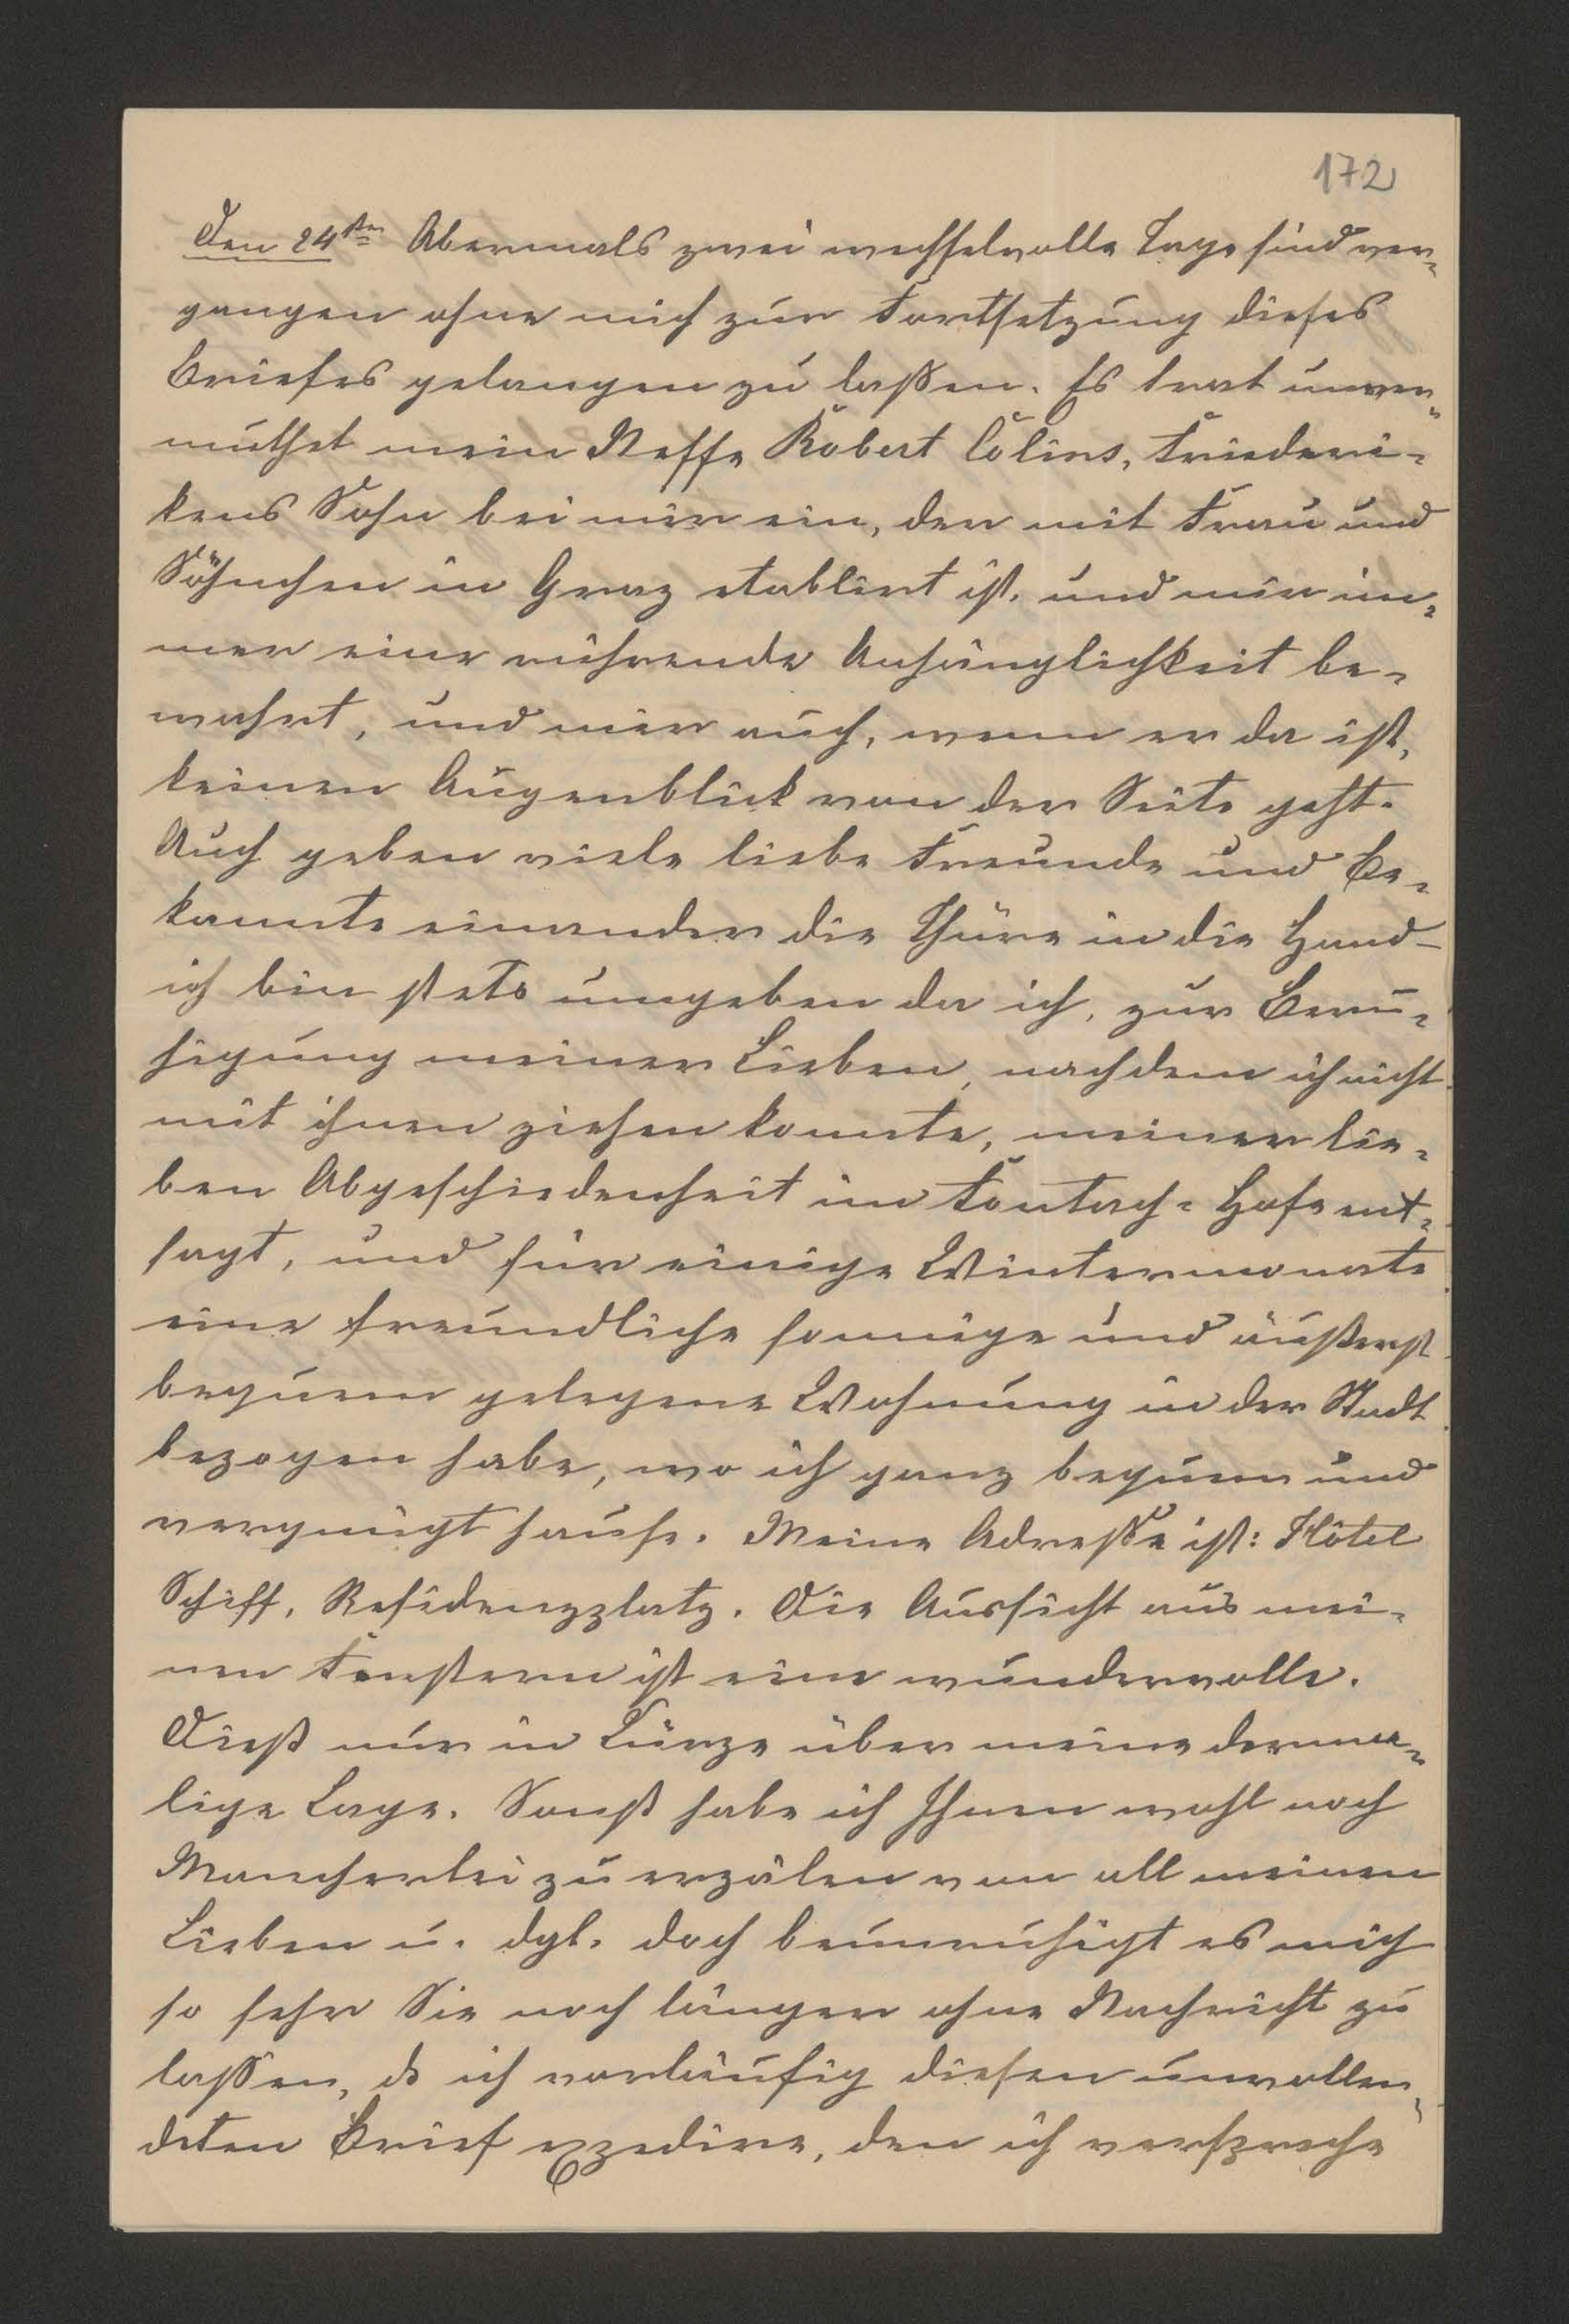 172
Den 24ten Abermals zwei wechselvolle Tage sind ver=
gangen ohne mich zur Fortsetzung dieses
Briefes gelangen zu laßen. Es trat unver=
muthet mein Neffe Robert Colins, Friederi=
kens Sohn bei mir ein, der mit Frau und
Söhnchen in Graz etablirt ist, und mir im=
mer eine rührende Anhänglichkeit be=
wahrt, und mir auch, wenn er da ist,
keinen Augenblick von der Seite geht.
Auch geben viele liebe Freunde und Be=
kannte einander die Thüre in die Hand –
ich bin stets umgeben da ich, zur Beru=
higung meiner Lieben, nachdem ich nicht
mit ihnen ziehen konnte, meiner lie=
ben Abgeschiedenheit im Hofe ent=
sagt, und für einige Wintermonate
eine freundliche sonnige und äußerst
bequem gelegene Wohnung in der Stadt
bezogen habe, wo ich ganz bequem und
vergnügt hause. Meine Adreße ist: Hôtel
Schiff, Residenzplatz. Die Aussicht aus mei=
nen Fenstern ist eine wundervolle.
Dieß nur in Kürze über meine derma=
lige Lage. Sonst habe ich Ihnen wohl noch
Mancherlei zu erzälen von all meinen
Lieben u. dgl. doch beunruhigt es mich
so sehr Sie noch länger ohne Nachricht zu
lassen, ds ich vorläufig diesen unvollen=
deten Brief expedire, den ich verspreche